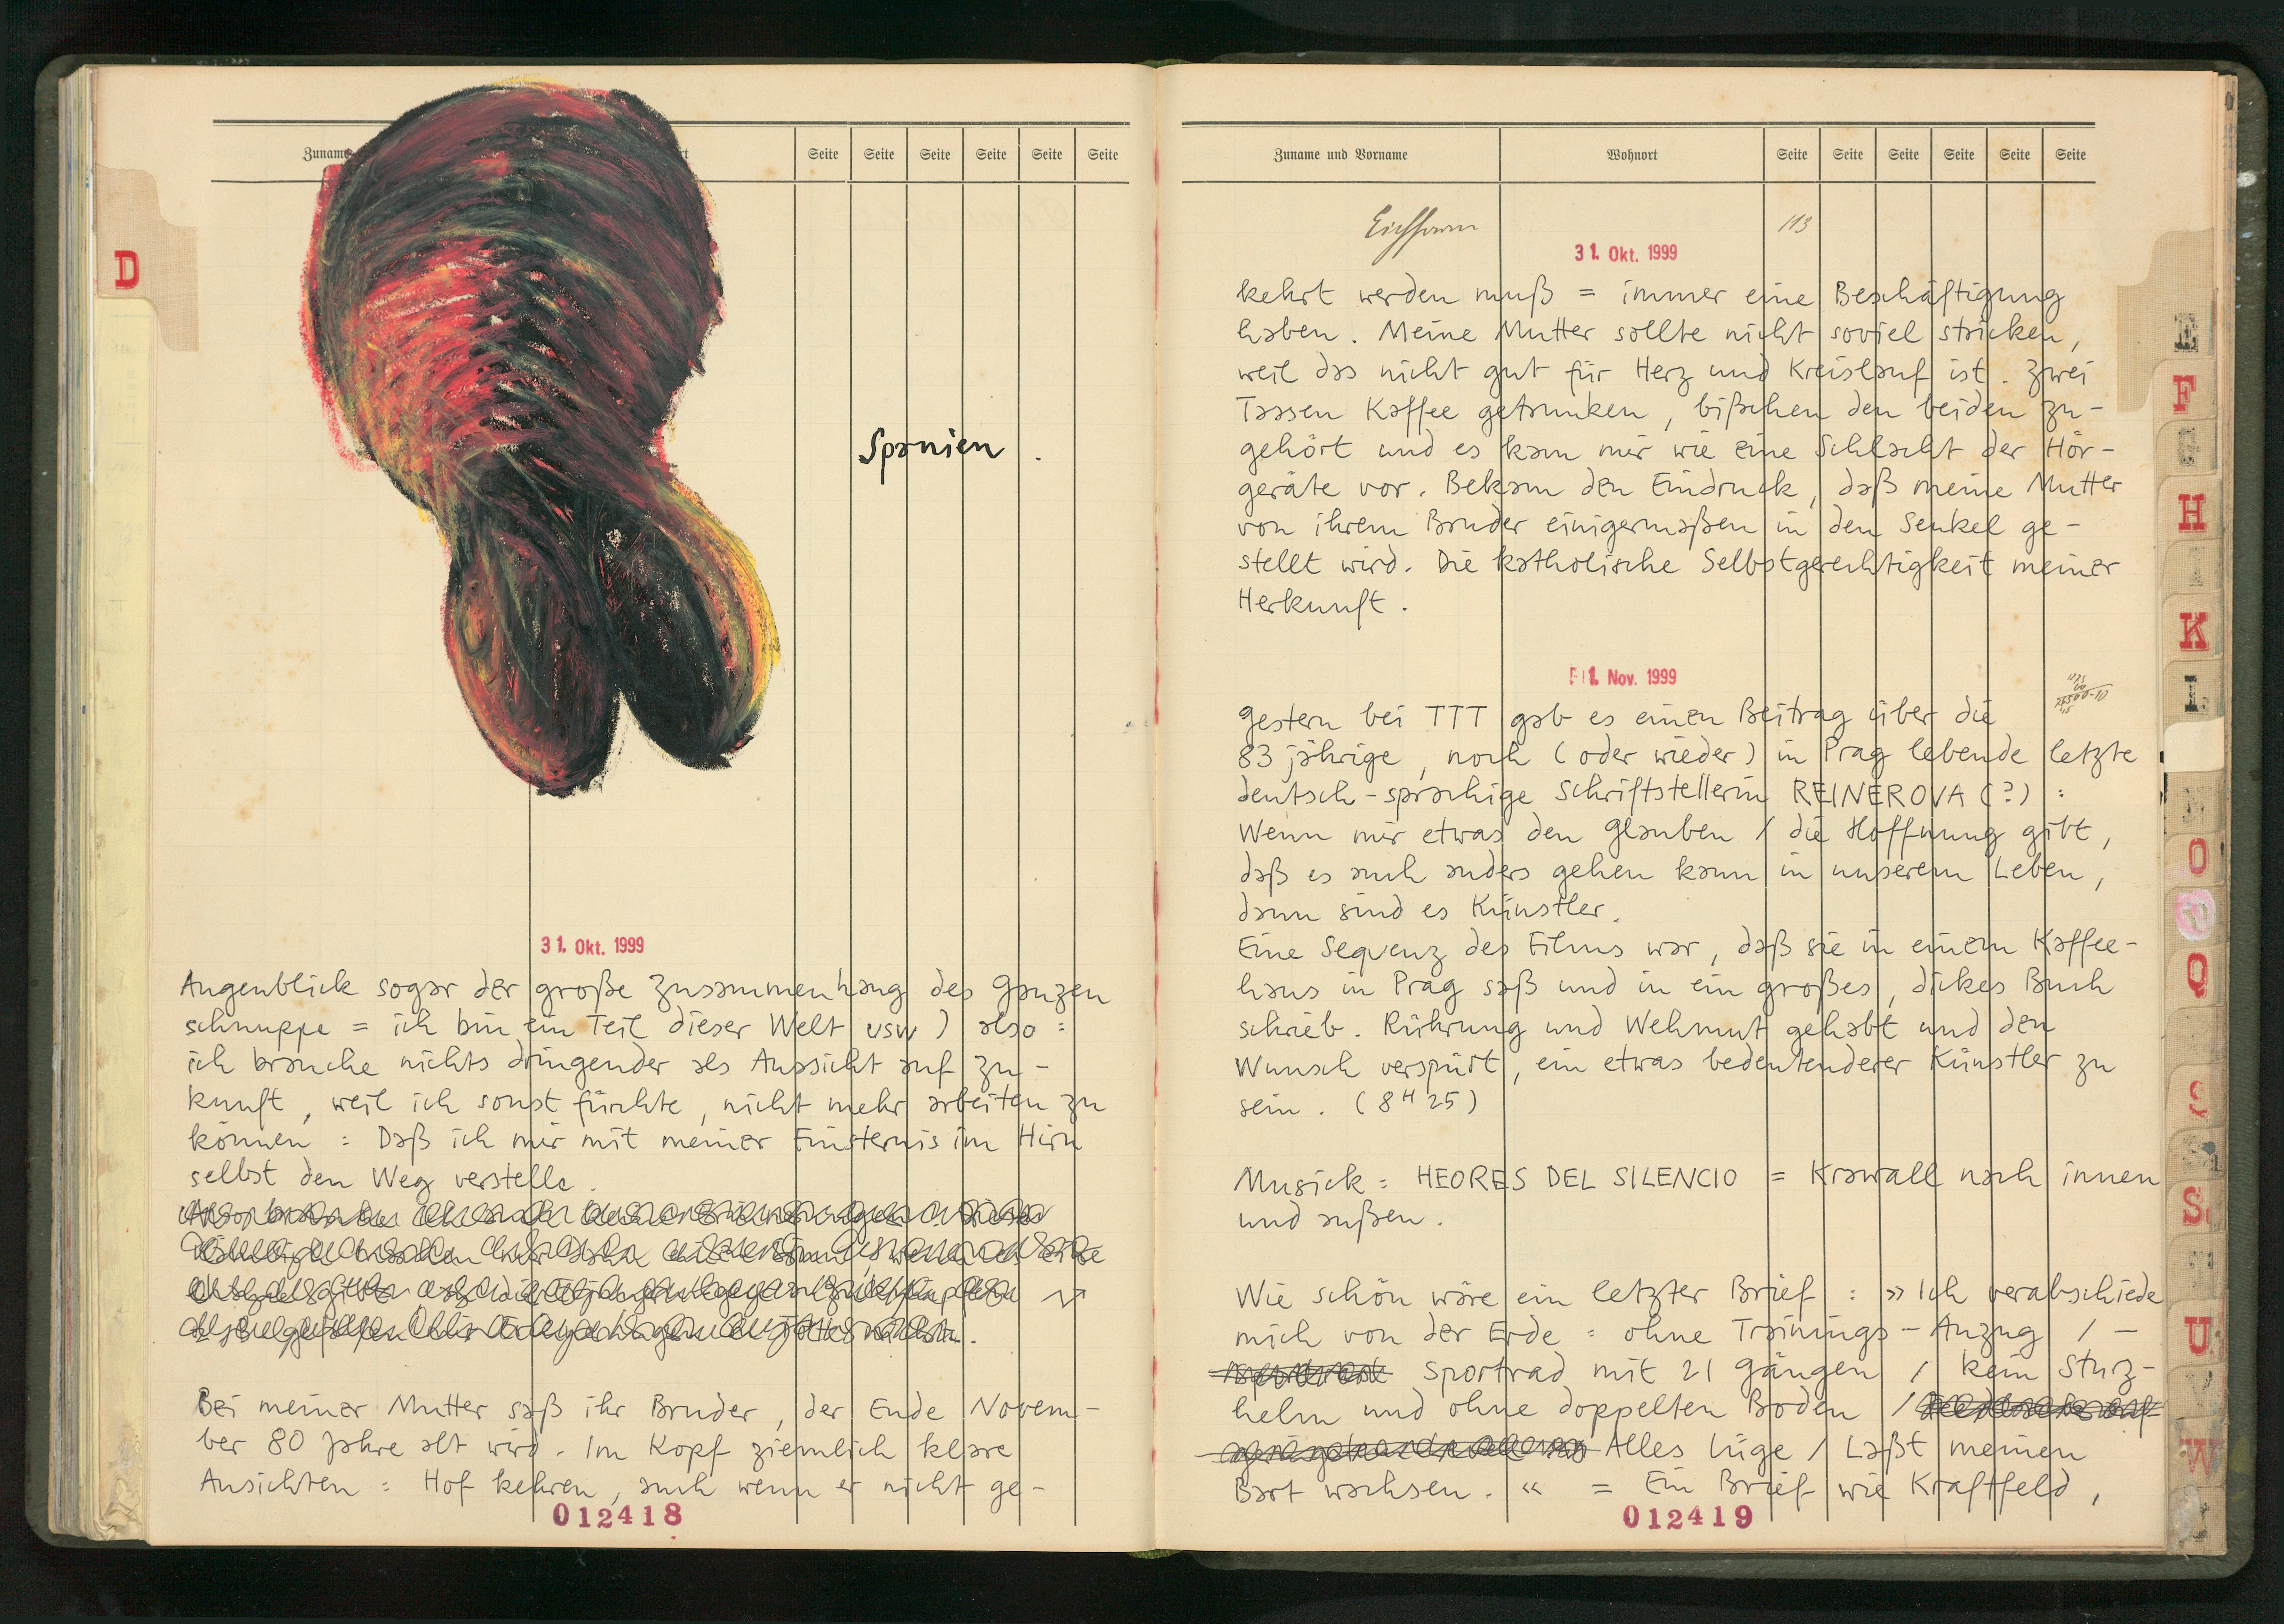 D
Seite Seite Seite Seite Seite Seite
Spanien.
31. Okt. 1999
Augenblick sogar der große Zusammenhang des Ganzen
schnuppe = ich bin ein Teil dieser Welt usw ) also :
ich brauche nichts dringender als Aussicht auf Zu-
kunft, weil ich sonst fürchte, nicht mehr arbeiten zu
können : Daß ich mir mit meiner Finsternis im Hirn
selbst den Weg verstelle.
Bei meiner Mutter saß ihr Bruder, der Ende Novem-
ber 80 Jahre alt wird. Im Kopf ziemlich klare
Ansichten : Hof kehren, auch wenn er nicht ge-
012418
Zuname und Vorname Wohnort Seite Seite Seite Seite Seite Seite
113
31. Okt. 1999
kehrt werden muß = immer eine Beschäftigung
haben. Meine Mutter sollte nicht soviel stricken,
weil das nicht gut für Herz und Kreislauf ist. Zwei
Tassen Kaffee getrunken, bißchen den beiden zu-
gehört und es kam mir wie eine Schlacht der Hör-
geräte vor. Bekam den Eindruck, daß meine Mutter
von ihrem Bruder einigermaßen in den Senkel ge-
stellt wird. Die katholische Selbstgerechtigkeit meiner
Herkunft.
1. Nov. 1999
Gestern bei TTT gab es einen Beitrag über die
83 jährige, noch (oder wieder) in Prag lebende letzte
deutsch-sprachige Schriftstellerin REINEROVA (?) :
Wenn mir etwas den Glauben / die Hoffnung gibt,
daß es auch anders gehen kann in unserem Leben,
dann sind es Künstler.
Eine Sequenz des Films war, daß sie in einem Kaffee-
haus in Prag saß und in ein großes, dickes Buch
schrieb. Rührung und Wehmut gehabt und den
Wunsch verspürt, ein etwas bedeutenderer Künstler zu
sein. (8 H 25)
Musick : HEORES DEL SILENCIO = Krawall nach innen
und außen.
Wie schön wäre ein letzter Brief : » Ich verabschiede
mich von der Erde : ohne Trainings-Anzug / -
Sportrad mit 21 Gängen / kein Sturz-
helm und ohne doppelten Boden /
Alles Lüge / Laßt meinen
Bart wachsen. « = Ein Brief wie Kraftfeld,
012419
E
F
H
I
K
L
O
Q
S
S
U
W